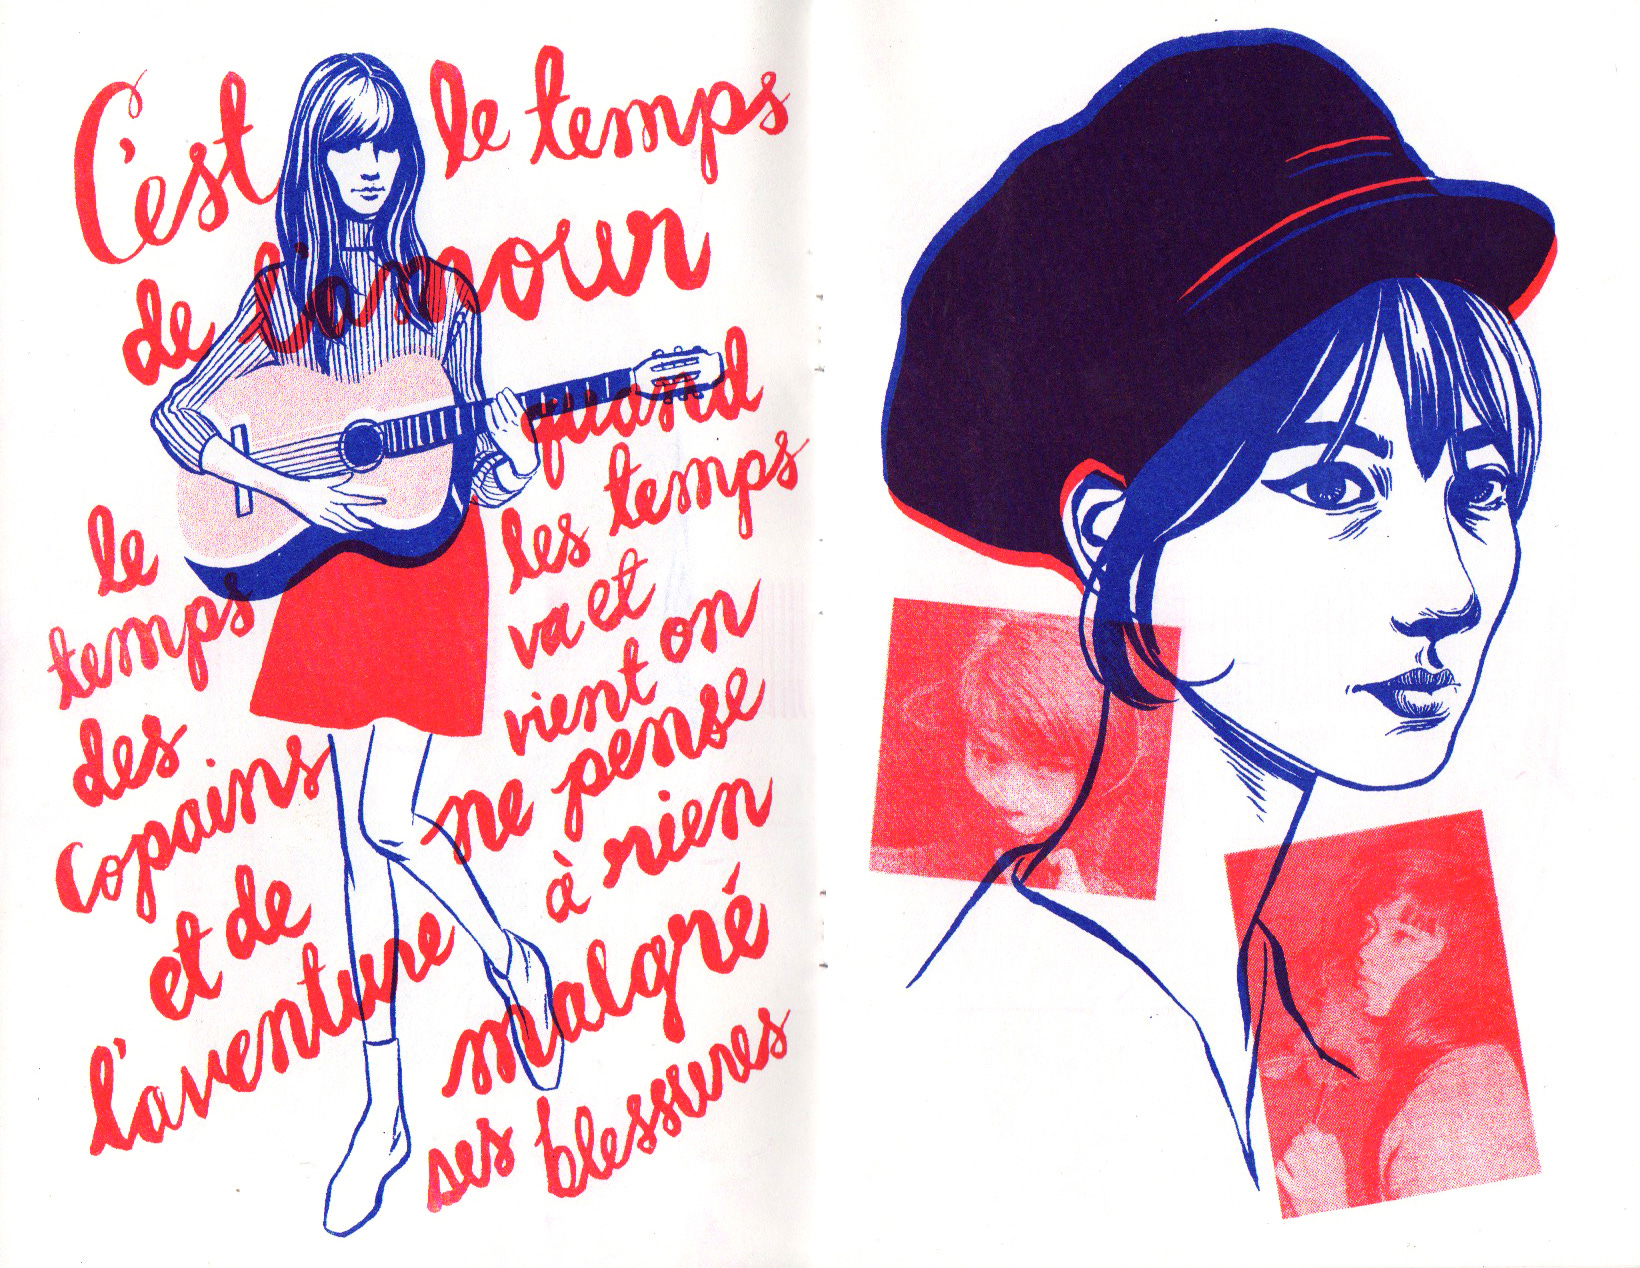 C'est le temps
de l'amour
le
temps
des
copains
et de
l'aventure
quand
les temps
va et
vient on
ne pense
à rien
malgré
ses blessures